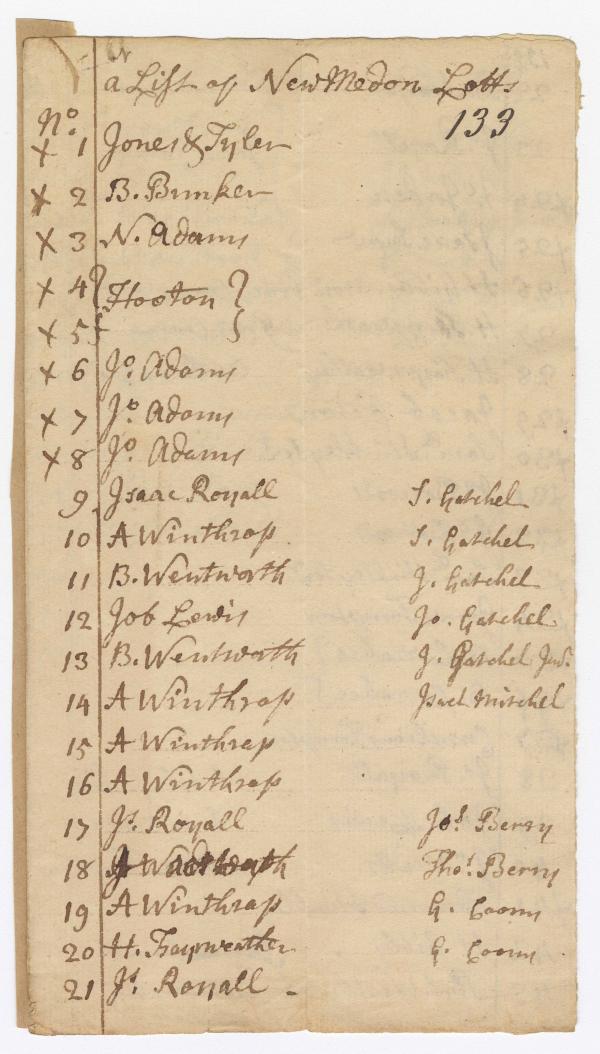 a List of New Medon Lotts
133
No.
x 1 Jones & Tyler
x 2 B. Bunker
x 3 N. Adams
x 4 { Hooton }
x 5 {
x 6 Jo. Adams
x 7 Jo. Adams
x 8 Jo. Adams
9 Isaac Royall S. Gatchel
10 A Winthrop S. Gatchel
11 B. Wentworth J. Gatchel
12 Job Lewis Jo. Gatchel
13 B. Wentworth J. Gatchel Jur.
14 A Winthrop Mitchel
15 A Winthrop
16 A Winthrop
17 Js. Royall Jos. Berry
18 Thos. Berry
19 A Winthrop G. Cooms
20 H. G. Cooms
21 Js. Royall -